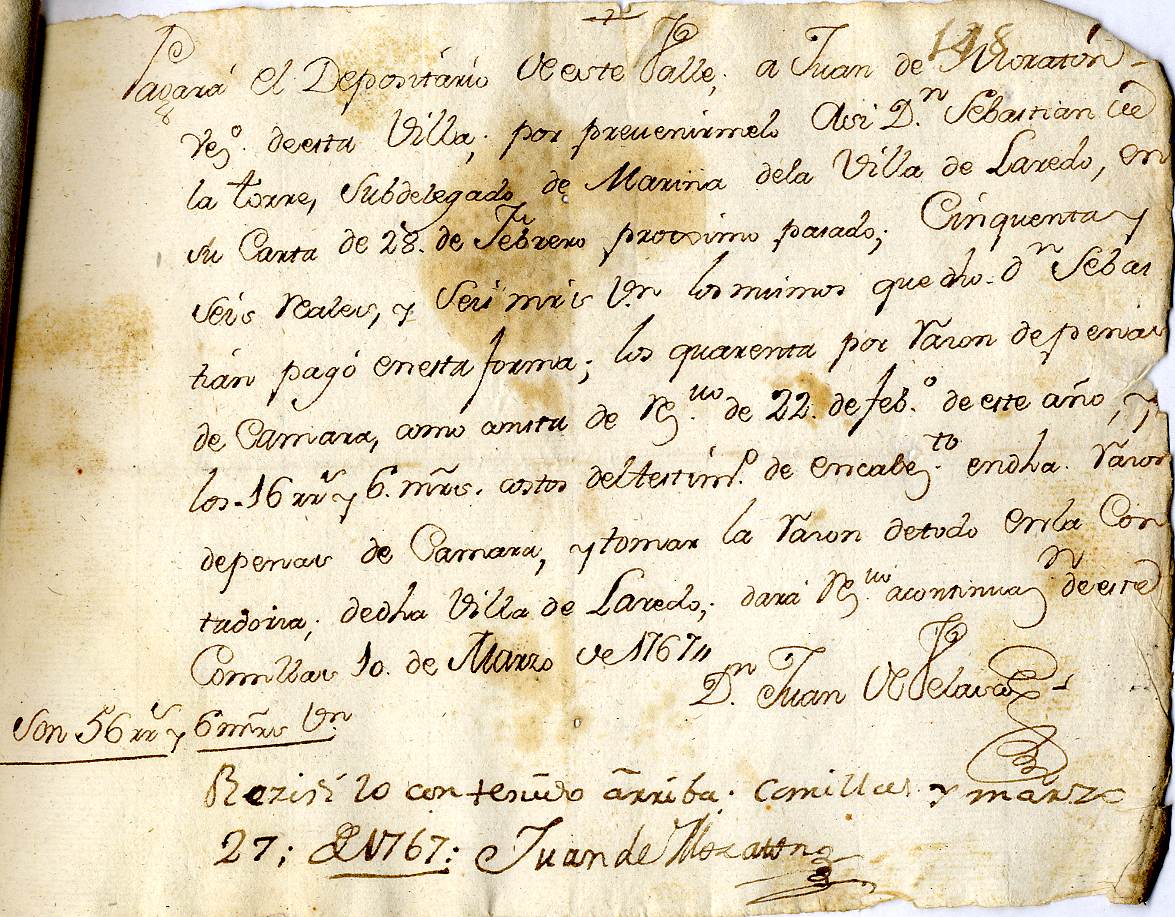 148
Pagará el Depositário de este Valle, a Juan de Moratón
vez.º de esta Villa; por prevenirmelo Asi D.n Sebastian de
la torre, Subdelegado de Marina dela Villa de Laredo, en
su Carta de 28. de Febrero procsimo pasado; Cinquenta y
seis reales, y seis mrs Vn los mismos que dho. Dn Sebas
tián pagó enesta forma; los quarenta por Razon de penas
de Camara, como consta de Rez.uo de 22. de feb.º de este año, y
los 16 rrs y 6. mrs. costos del testim.º de encabez.to endha. Razon
depenas de Camara, y tomar la Razon detodo enla Con
tadoria, dedha Villa de Laredo; dará Rez.uo acontinuaz.n de este
Comillas 10. de Marzo de 1767
D.n Juan de Velarde
Son 56 rrs y 6 mrs Vn
Rezivi lo contenido arriba. Comillas y marzo
27; de 1767: Juan de Moraton